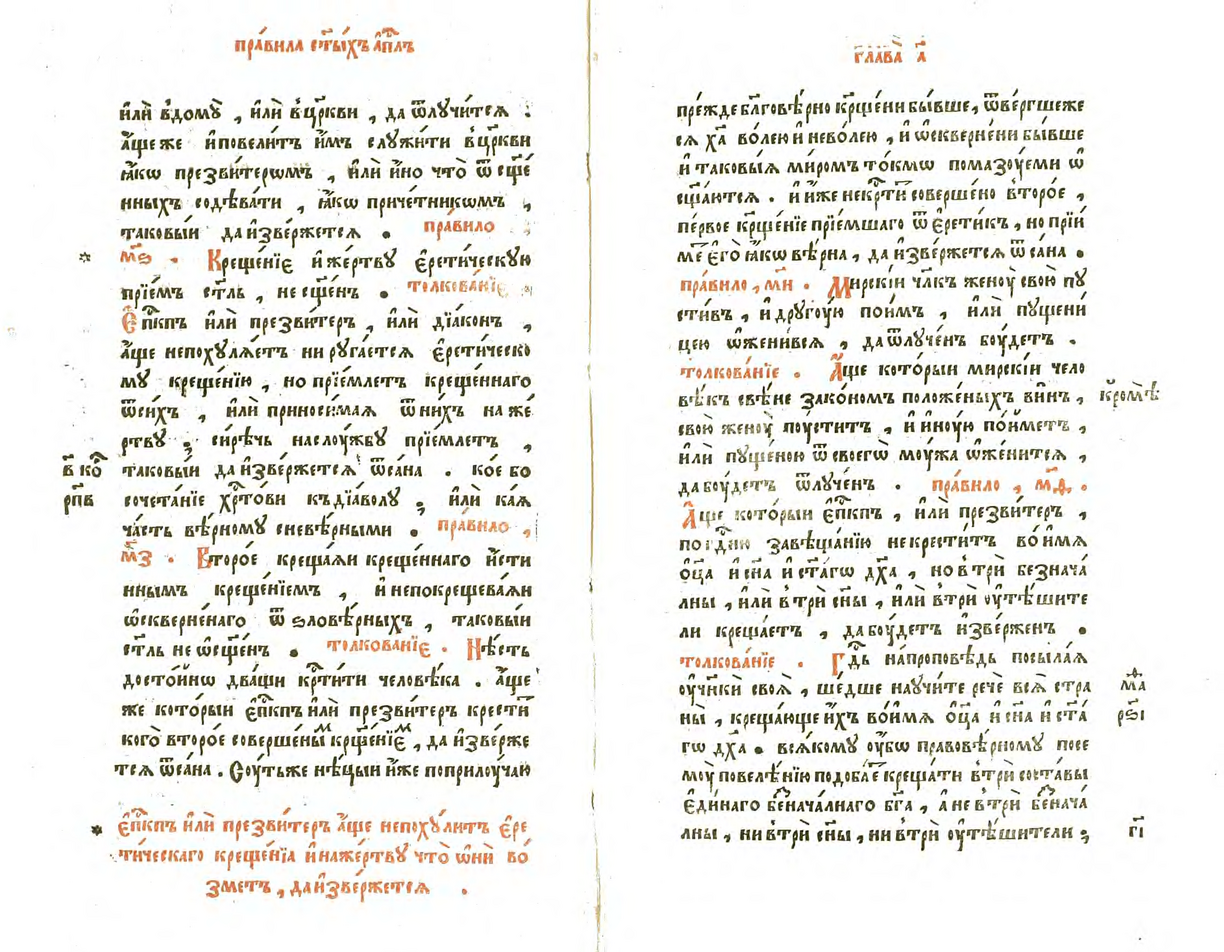 пра́вила ст҃ы́хъ а҆пл҃ъ
и҆лѝ вдомꙋ̀ , и҆лѝ вцр҃кви , да ѿлꙋчи́тсѧ :
а҆́ще же и҆повели́тъ и҆̀мъ слꙋжи́ти вцр҃кви
ꙗ҆́кѡ презви́терѡмъ , и҆лѝ и҆́но что̀ ѿ сщ҃е́
нныхъ содѣва́ти , ꙗ҆́кѡ приче́тникѡмъ ,
таковы́и да и҆зве́ржетсѧ . пра́вило
м҃ѕ . Креще́нїе и҆ же́ртвꙋ є҆рети́ческꙋю
прїе́мъ ст҃ль , не сщ҃е́нъ . толкова́нїе
Є҆пк҃пъ и҆лѝ презви́терь , и҆лѝ дїа́конъ ,
а҆́ще непохꙋлѧ́етъ ни рꙋга́етсѧ є҆рети́ческо
мꙋ креще́нїю , но прїе́млетъ креще́ннаго
ѿси́хъ , и҆лѝ приноси́маѧ ѿни́хъ на же́
ртвꙋ ; си́рѣчь наслоу́жбꙋ прїе́млетъ ,
таковы́и да и҆зве́ржетсѧ ѿса́на . ко́е бо
в҃ ко҃
сочета́нїе хр҃то́ви къдїа́волꙋ ; и҆лѝ ка́ѧ
рп҃в
ча́сть вѣ́рномꙋ сневѣ́рными . пра́вило ,
м҃з . Второ́е креща́ѧи креще́ннаго и҆́сти
ннымъ креще́нїемъ , и҆ непокрещева́ѧи
ѡ҆скверне́наго ѿ ѕловѣ́рныхъ , таковы́и
ст҃ль не ѡ҆сщ҃е́нъ . толкова́нїе . Нѣ́сть
досто́йнѡ два́щи кр҃ти́ти человѣ́ка . а҆́ще
же кото́рыи є҆пк҃пъ и҆лѝ презви́теръ крести́т
кого̀ второ́е соверше́ны́м кр҃ще́нїем , да и҆зве́рже
тсѧ ѿса́на . Соу́тьже нѣ́цыи и҆̀же поприлоу́чаю
є҆пк҃пъ и҆лѝ презви́теръ а҆́ще непохꙋ́литъ є҆ре
ти́ческаго креще́нїѧ и҆ на же́ртвꙋ что̀ ѡ҆нѝ во́
зметъ , да и҆зве́ржетсѧ .
глава̀ а҃
пре́жде бл҃говѣ́рно кр҃ще́ни бы́вше , ѿве́ргшеже
сѧ хр҃та̀ во́лею и҆ нево́лею , и҆ ѡ҆скверне́ни бы́вше
и҆ таковы́ѧ ми́ромъ то́кмѡ помазоу́еми ѡ҆
сщ҃а́ютсѧ . и҆ и҆́же некр҃ти́ соверше́но второ́е ,
пе́рвое кр҃ще́нїе прїе́мшаго ѿ є҆рети́къ , но прїи́
ме́т є҆го̀ ꙗ҆́кѡ вѣ́рна , да и҆зве́ржетсѧ ѿ са́на .
пра́вило , м҃и . Мирскі́и чл҃къ женоу̀ свою̀ пꙋ
сти́въ , и҆ дрꙋгоу́ю пои́мъ , и҆лѝ пꙋщени́
цею ѡ҆жени́всѧ , да ѿлꙋче́нъ боу́детъ .
толкова́нїе . А҆́ще кото́рыи мирскі́и чело
вѣ́къ свѣ́не зако́номъ положе́ныхъ ви́нъ ,
кромѣ̀
свою̀ женоу̀ поу́ститъ , и҆ и҆ноу́ю по́иметъ ,
и҆лѝ пꙋще́ною ѿ своегѡ̀ моу́жа ѡ҆же́нитсѧ ,
да боу́детъ ѿлꙋче́нъ . пра́вило , м҃ѳ .
А҆́ще кото́рыи є҆пк҃пъ , и҆лѝ презви́терь ,
по гд҃ню завѣща́нїю некрести́тъ во и҆́мѧ
ѻ҆ц҃а̀ и҆ сн҃а и҆ ст҃а́гѡ дх҃а , но в трѝ безнача́
лны , и҆лѝ в трѝ сн҃ы , и҆лѝ втрѝ оу҆тѣ́шите
ли креща́етъ , да боу́детъ и҆зве́рженъ .
толкова́нїе . Гд҃ь на́проповѣдь посыла́ѧ
оу҆чн҃икѝ своѧ̀ , ше́дше наꙋчи́те речѐ всѧ̀ стра
м҃а
ны̀ , креща́юще и҆́хъ во и҆́мѧ ѻ҆ц҃а̀ и҆ сн҃а и҆ ст҃а́
рѕ҃і
гѡ дх҃а . всѧ́комꙋ оу҆́бѡ правовѣ́рномꙋ посе
моу̀ повелѣ́нїю подоба́ет креща́ти втрѝ соста́вы
є҆ди́наго безнача́лнаго бг҃а , а҆ не втрѝ безнача́
лны , ни втрѝ сн҃ы , ни втрѝ оу҆тѣ́шители ;
г҃і